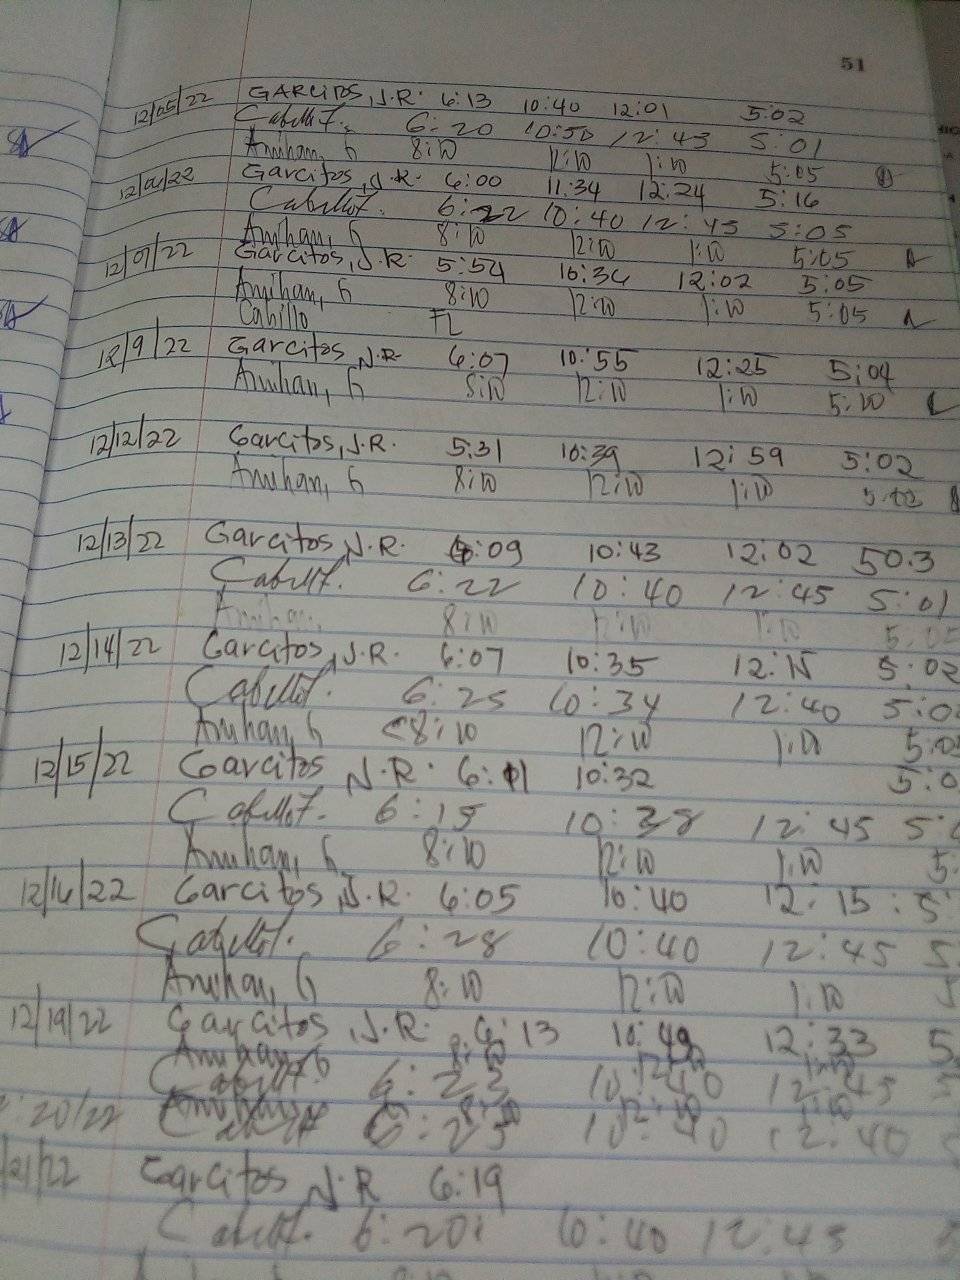 51
12/05/22 GARCITOS, J.R. 6:13 10:40 12:01 5:02
Cabillo T. 6:20 10:50 12:43 5:01
Anihan, G 8:00 12:00 1:00 5:05
12/6/22 Garcitos, J.R. 6:00 11:34 12:24 5:16
Cabillo T. 6:22 10:40 12:45 5:05
Anihan, G 8:00 12:00 1:00 5:05
12/07/22 Garcitos, J.R. 5:54 10:36 12:02 5:05
Anihan, G 8:00 12:00 1:00 5:05
Cabillo FL
12/9/22 Garcitos, J.R. 6:07 10:55 12:25 5:04
Anihan, G 8:00 12:00 1:00 5:00
12/12/22 Garcitos, J.R. 5:31 10:39 12:59 5:02
Anihan, G 8:00 12:00 1:00 5:02
12/13/22 Garcitos, J.R. 6:09 10:43 12:02 50.3
Cabillo T. 6:22 10:40 12:45 5:01
Anihan, 8:00 12:00 1:00 5:05
12/14/22 Garcitos, J.R. 6:07 10:35 12:15 5:02
Cabillo T. 6:25 10:34 12:40 5:0
Anihan, G 8:00 12:00 1:00 5:05
12/15/22 Garcitos J.R. 6:11 10:32 5:0
Cabillo T. 6:15 10:38 12:45 5:
Anihan, G 8:00 12:00 1:00 5:
12/16/22 Garcitos, J.R. 6:05 10:40 12:15 5
Cabillo T. 6:28 10:40 12:45 5
Anihan, G 8:00 12:00 1:00 5
12/19/22 Garcitos, J.R. 6:13 10:49 12:33 5
Anihan, G 8:00 12:00 1:00
Cabillo T. 6:23 10:40 12:45
20/22 Anihan 8:00 12:00 1:00
Cabillo T 6:25 10:40 12:40
21/22 Garcitos J.R 6:19
Cabillo T. 6:20 10:40 12:45